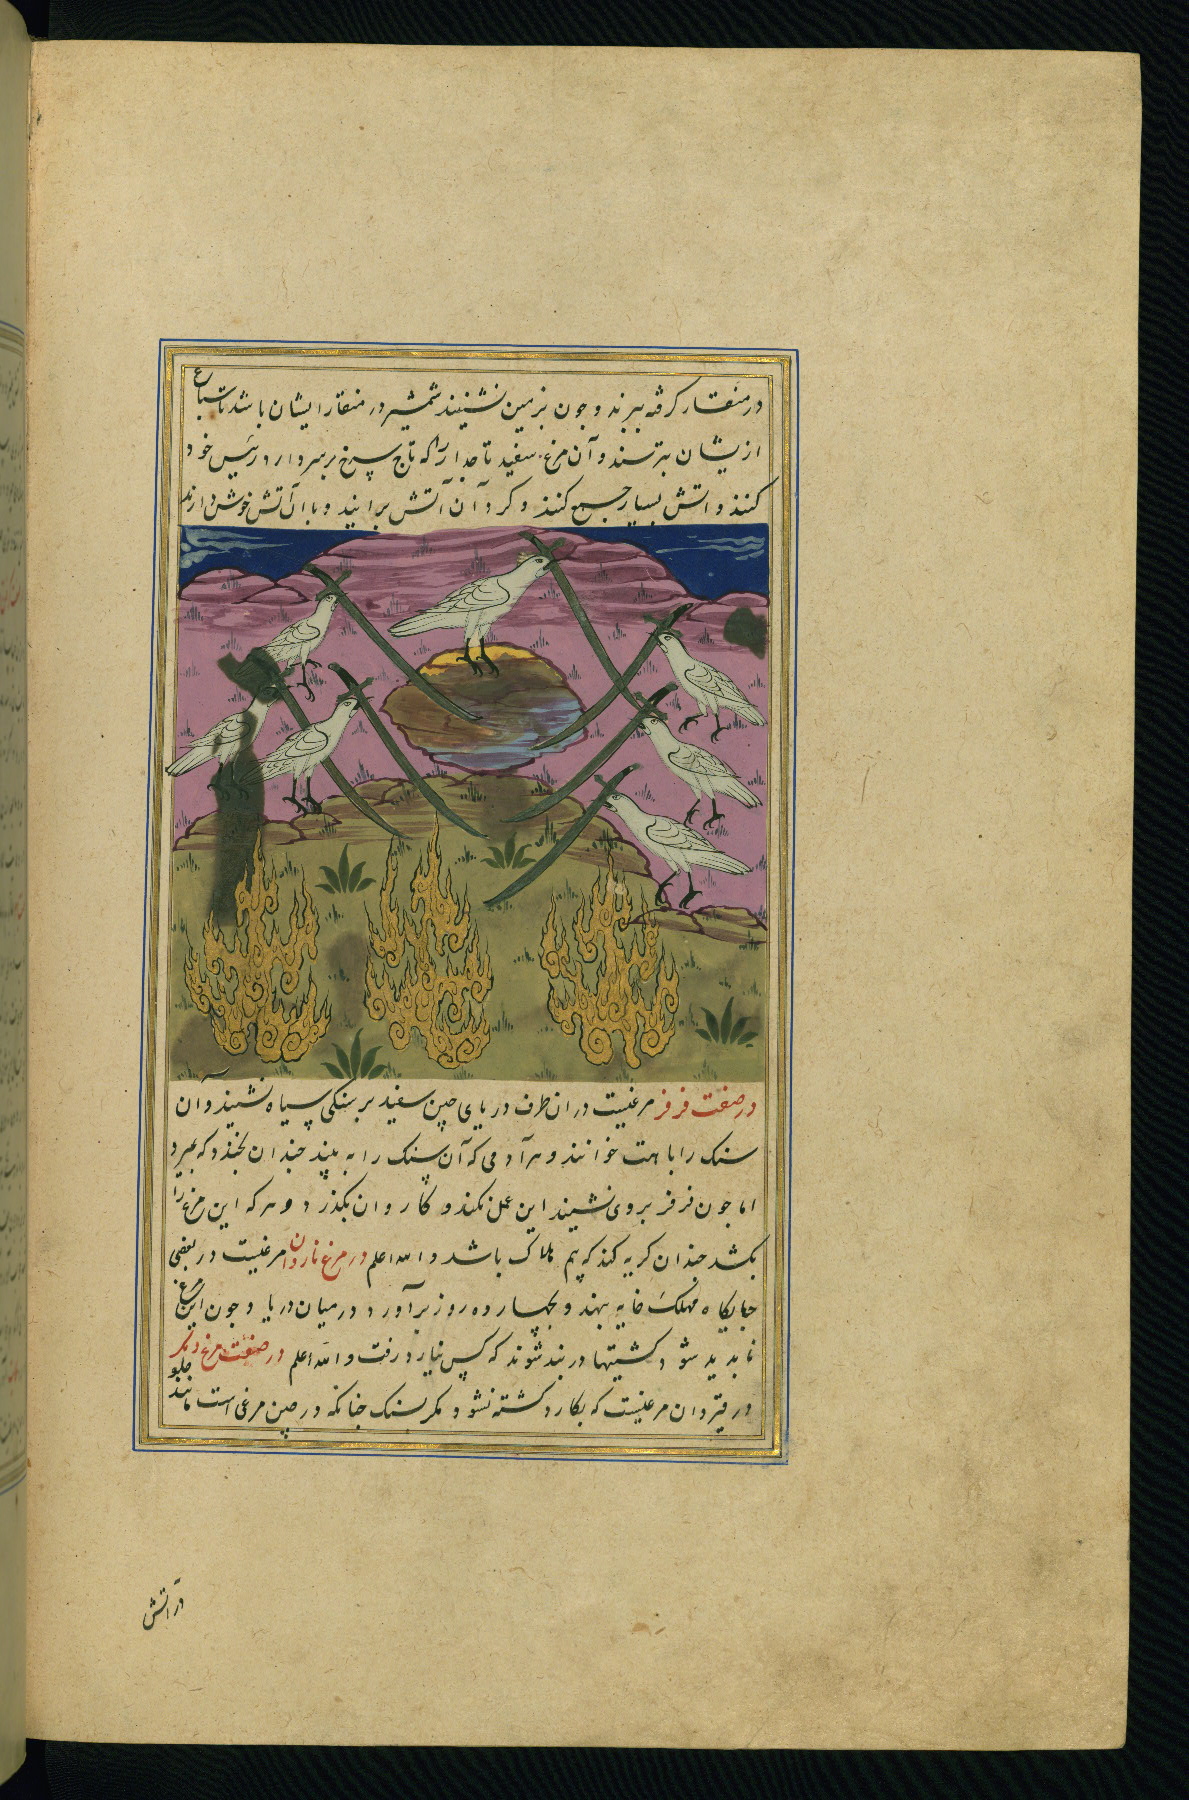 در منقار گرفته ببرند و جون بزمین نشینند شمشیر در منقار ایشان باشد تا سباع
ازیشان بترسند و آن مرغ سفید تاجدار را که تاج سرخ بر سر دارد رئیس خود
کنند و اتش بسیار جمع کنند و کرد آن آتش برایند و با آن آتش خوش دارند
در صفت فرفر مرغیست در ان طرف دریای چین سفید بر سنکی سیاه نشیند و آن
سنک را باهت خوانند و هر آدمی که آن سنک را به بیند چندان بخندد که بمیرد
اما جون فرفر بر وی نشیند این عمل نکند و کاروان بکذرد و هر که این مرغ را
بکشد جندان کریه کند که بیم هلاک باشد و الله اعلم در مرغ ناردان مرغیست در بعضی
جایکاه مهلک خایه بنهد و بچهار ده روز برآورد در میان دریا و جون این مرغ
نابدید شود کشتیها در بند شوند که کس نیارد رفت و الله اعلم در صفت مرغ دیکر
در قیروان مرغیست که بکارد کشته نشود مکر بسنک جنانکه در چین مرغی است مانند
در اتش